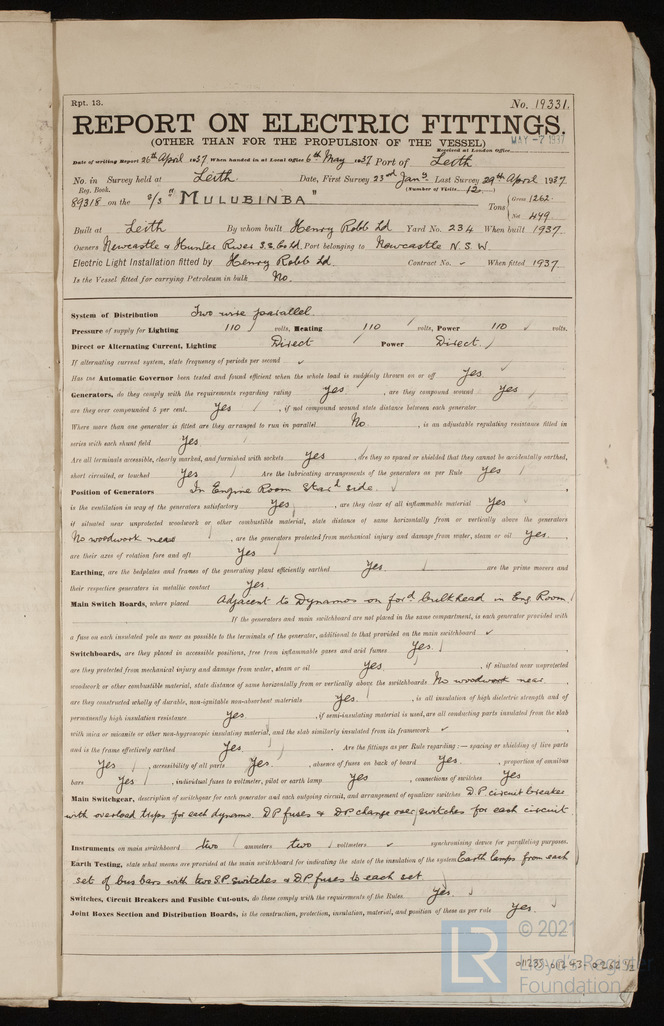 Rpt. 13. No. 19331.
REPORT ON ELECTRIC FITTINGS.
(OTHER THAN FOR THE PROPULSION OF THE VESSEL)
MAY -7 1937
Received at London Office
Date of writing Report 26th April 1937 When handed in at Local Office 6th May 1937 Port of Leith
No. in Survey held at Leith Date, First Survey 23rd Jany Last Survey 29th April 1937
Reg. Book. (Number of Visits 12)
89318 on the S/S "MULUBINBA" Tons { Gross 1262
Net 449
Built at Leith By whom built Henry Robb Ld Yard No. 234 When built 1937
Owners Newcastle & Hunter River S.S. Co Ld. Port belonging to Newcastle N.S.W.
Electric Light Installation fitted by Henry Robb Ld. Contract No. - When fitted 1937
Is the Vessel fitted for carrying Petroleum in bulk No.
System of Distribution Two wire parallel.
Pressure of supply for Lighting 110 volts, Heating 110 volts, Power 110 volts.
Direct or Alternating Current, Lighting Direct Power Direct.
If alternating current system, state frequency of periods per second
Has the Automatic Governor been tested and found efficient when the whole load is suddenly thrown on or off Yes.
Generators, do they comply with the requirements regarding rating Yes , are they compound wound Yes
are they over compounded 5 per cent. Yes , if not compound wound state distance between each generator
Where more than one generator is fitted are they arranged to run in parallel No , is an adjustable regulating resistance fitted in
series with each shunt field Yes
Are all terminals accessible, clearly marked, and furnished with sockets Yes , Are they so spaced or shielded that they cannot be accidentally earthed,
short circuited, or touched Yes Are the lubricating arrangements of the generators as per Rule Yes
Position of Generators In Engine Room Starbd side.
is the ventilation in way of the generators satisfactory Yes , are they clear of all inflammable material Yes
if situated near unprotected woodwork or other combustible material, state distance of same horizontally from or vertically above the generators
No woodwork near , are the generators protected from mechanical injury and damage from water, steam or oil Yes.
are their axes of rotation fore and aft Yes
Earthing, are the bedplates and frames of the generating plant efficiently earthed Yes. are the prime movers and
their respective generators in metallic contact Yes
Main Switch Boards, where placed Adjacent to Dynamos on ford. bulkhead in Eng Room
If the generators and main switchboard are not placed in the same compartment, is each generator provided with
a fuse on each insulated pole as near as possible to the terminals of the generator, additional to that provided on the main switchboard
Switchboards, are they placed in accessible positions, free from inflammable gases and acid fumes Yes.
are they protected from mechanical injury and damage from water, steam or oil Yes. , if situated near unprotected
woodwork or other combustible material, state distance of same horizontally from or vertically above the switchboards No woodwork near
are they constructed wholly of durable, non-ignitable non-absorbent materials Yes. , is all insulation of high dielectric strength and of
permanently high insulation resistance Yes. , if semi-insulating material is used, are all conducting parts insulated from the slab
with mica or micanite or other non-hygroscopic insulating material, and the slab similarly insulated from its framework
and is the frame effectively earthed Yes. . Are the fittings as per Rule regarding:— spacing or shielding of live parts
Yes , accessibility of all parts Yes. , absence of fuses on back of board Yes. , proportion of omnibus
bars Yes , individual fuses to voltmeter, pilot or earth lamp Yes , connections of switches Yes
Main Switchgear, description of switchgear for each generator and each outgoing circuit, and arrangement of equalizer switches D.P circuit breaker
with overload trips for each dynamo. D.P fuses & D.P change over switches for each circuit
Instruments on main switchboard two ammeters two voltmeters synchronising device for paralleling purposes.
Earth Testing, state what means are provided at the main switchboard for indicating the state of the insulation of the system Earth lamps from each
set of bus bars with two S.P. switches & D.P fuses to each set
Switches, Circuit Breakers and Fusible Cut-outs, do these comply with the requirements of the Rules Yes.
Joint Boxes Section and Distribution Boards, is the construction, protection, insulation, material, and position of these as per rule Yes.
© 2021
LR
Lloyd's Register
Foundation